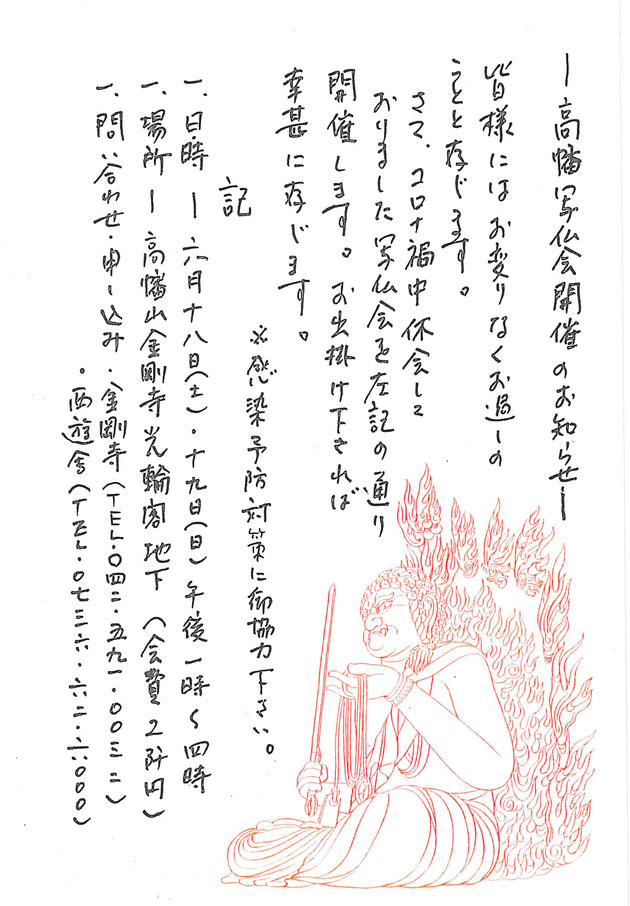 ー高幡写仏会開催のお知らせー
皆様にはお変りなくお過しの
ことと存じます。
さて、コロナ禍中休会して
おりました写仏会を左記の通り
開催します。お出掛け下されば
幸甚に存じます。
※感染予防対策に御協力下さい。
記
一、日時ー六月十八日(土)・十九日(日)午後一時〜四時
一、場所ー高幡山金剛寺光輪閣地下(会費2阡円)
一、問い合わせ・申し込み・金剛寺(TEL・〇四二・五九一・〇〇三二)
・西遊舎(TEL・〇七三六・六二・六〇〇〇)